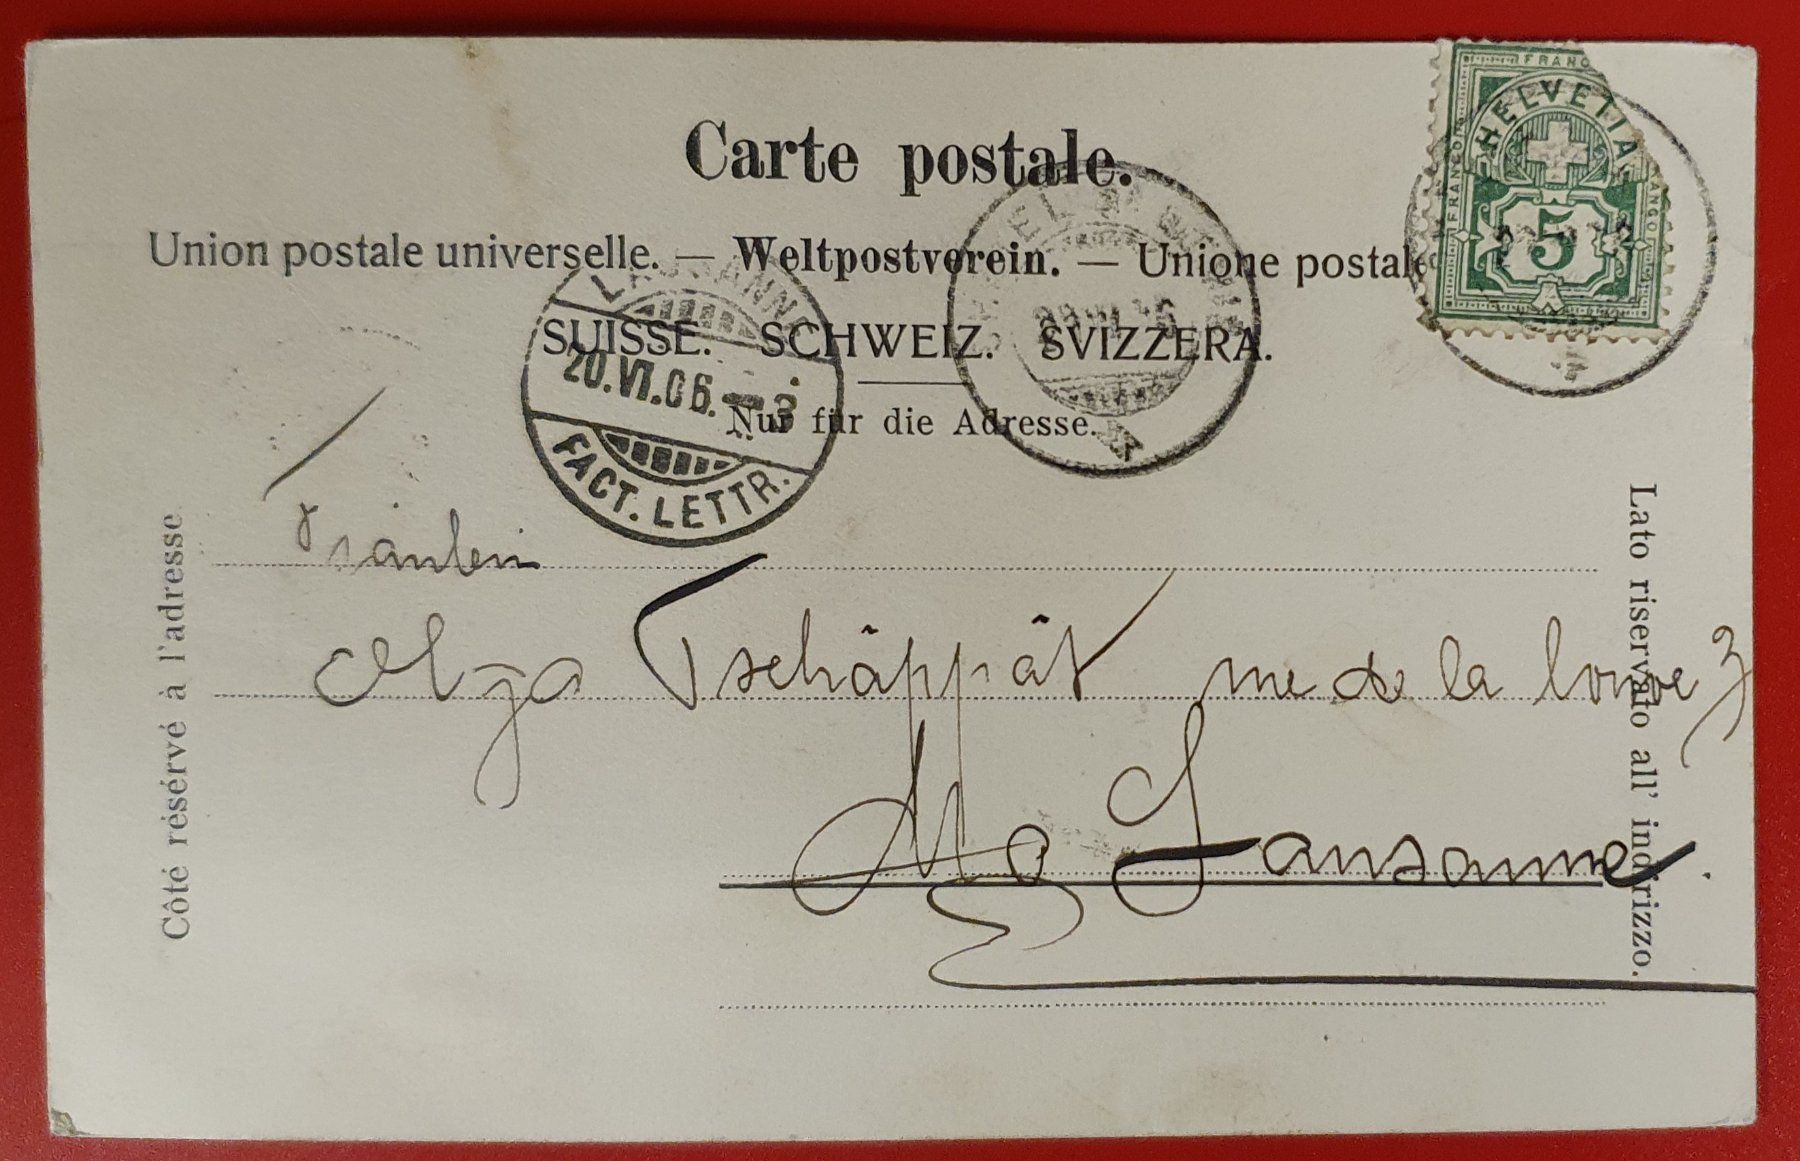 FRANCO
HELVETIA
5
Carte postale.
Union postale universelle. — Weltpostverein. — Unione postale
SUISSE. SCHWEIZ. SVIZZERA.
Nur für die Adresse.
LAUSANNE
20.VI.06.–3
FACT. LETTR.
Côté réservé à l'adresse
Lato riservato all' indirizzo.
Fräulein
Olga Tschäppät rue de la louve 3
Lausanne.